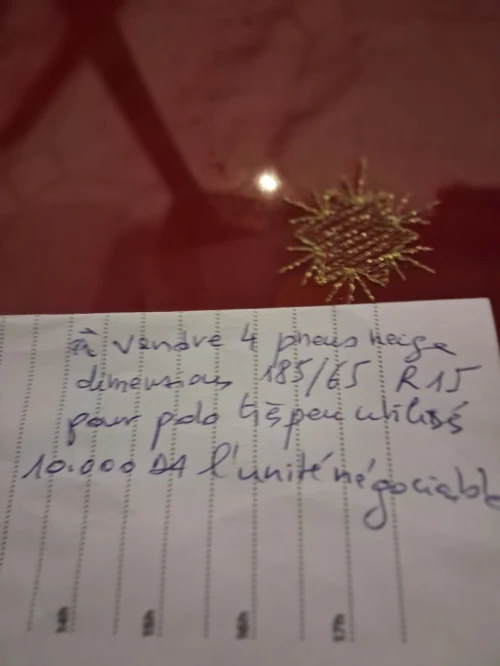 à vendre 4 pneus neige
dimensions 185/65 R15
pour polo très peu utilisés
10.000 DA l'unité négociable
14h 15h 16h 17h